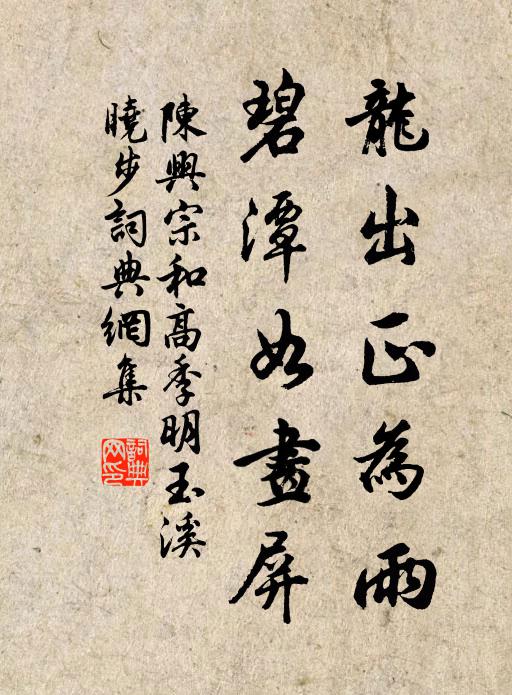 龍出正為雨
碧潭如畫屏
陳興宗和高季明玉溪
曉步詞典網集
詞典網印